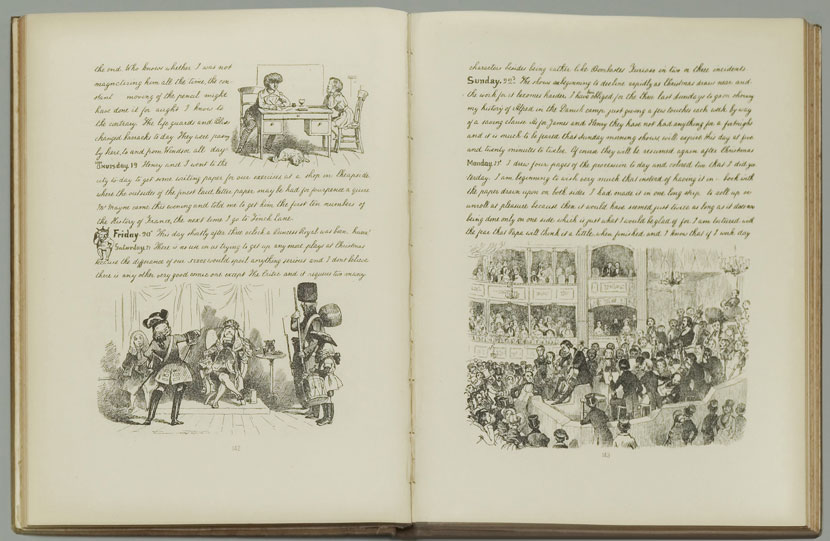 the end. Who knows whether I was not
magnetising him all the time, the con-
stant moving of the pencil might
have done it for aught I know to
the contrary. The life guards and blues
changed barracks to day. They will pass
by here, to and from Windsor all day
Thursday. 19 Henry and I went to the
city to day to get some writing paper for our exercises at a shop in Cheapside
where the outsides of the finest laid letter paper may be had for fivepence a quire
Mr Mayne came this morning and told me to get him the first ten numbers of
the History of France, the next time I go to Finch Lane.
Friday 20th This day shortly after three o'clock a Princess Royal was born. Huzza!
Saturday. 21 There is no use in us trying to get up any more plays at Christmas
because the difference of our sizes would spoil anything serious and I dont believe
there is any other very good comic one except the Critic and it requires too many
162
characters besides being rather like Bombastes Furioso in two or three incidents.
Sunday. 22d The shows are beginning to decline rapidly as Christmas draws near and
the work for it becomes harder. I have obliged for the three last Sundays to go on shewing
my history of Alfred in the Danish camp, just giving a few touches each week by way
of a saving clause. As for James and Henry they have not had anything for a fortnight
and it is much to be feared that Sunday morning shows will expire this day at five
and twenty minutes to twelve. Of course they will be resumed again after Christmas
Monday. I drew four pages of the procession to day and colored two that I did yes-
terday. I begin to wish very much that instead of having it in a book with
the paper drawn upon on both sides I had made it in one long strip to roll up or
unroll at pleasure because then it would have seemed just twice as long as it does now
being done only on one side which is just what I would be glad of for I am tortured with
the fear that Papa will think it a little when finished and I know that if I work day
163